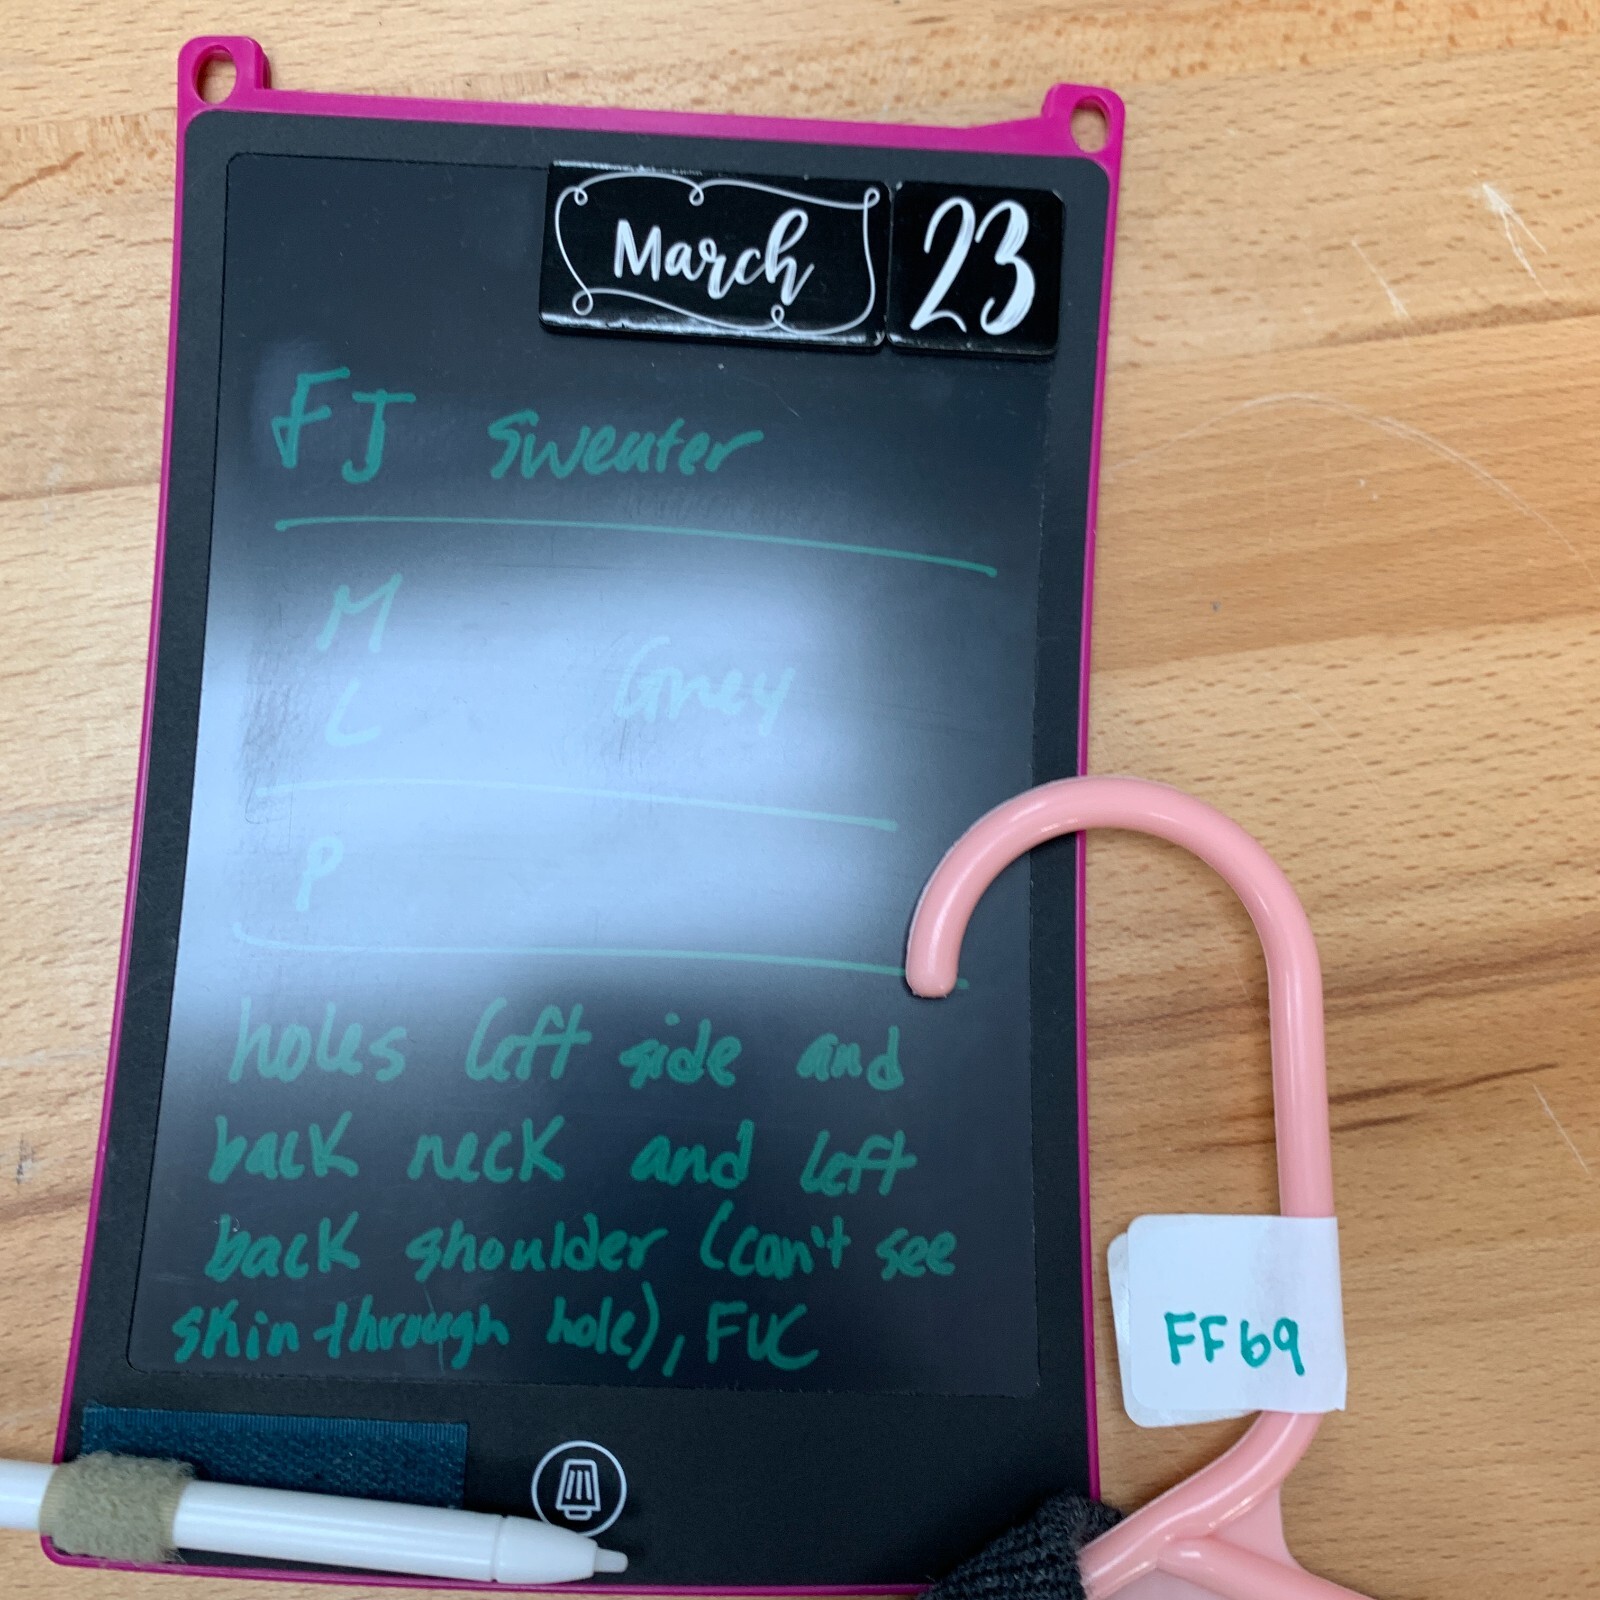 March 23
FJ Sweater
M
Grey
L
P
holes left side and
back neck and left
back shoulder (can't see
skin through hole), FUC
FF69